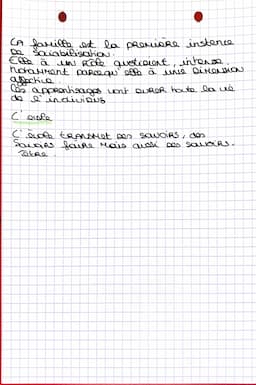 LA famille est la première instance
de sociabilisation.
Elle a un rôle quotidient, intense,
notamment parcequ'elle à une Dimension
affective
Les apprentisages vont durer toute la vie
de l'individus
L'école
L'école transmet des savoirs, des
savoirs faire mais aussi des savoirs.
être.